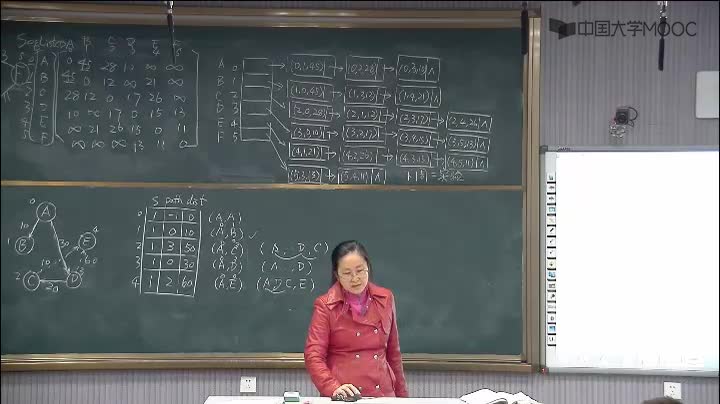 中国大学MOOC
SeqList
A B C D E F
A 0 45 28 10 ∞ ∞
B 45 0 12 ∞ 21 ∞
C 28 12 0 17 26 ∞
D 10 ∞ 17 0 15 13
E ∞ 21 26 15 0 11
F ∞ ∞ ∞ 13 11 0
A 0 (0,1,45) (0,2,28) (0,3,10) ∧
B 1 (1,0,45) (1,2,12) (1,4,21) ∧
C 2 (2,0,28) (2,1,12) (2,3,17) (2,4,26) ∧
D 3 (3,0,10) (3,2,17) (3,4,15) (3,5,13) ∧
E 4 (4,1,21) (4,2,26) (4,3,15) (4,5,11) ∧
F 5 (5,3,13) (5,4,11) ∧
s path dist
0 1 -1 0 (A,A)
1 1 0 10 (A,B) ✓
2 1 3 50 (A,C) (A, D, C)
3 1 0 30 (A,D) (A, D)
4 1 2 60 (A,E) (A,D,C,E)
0 A
10
1 B
30
4 E
10
60
2 C
20
D